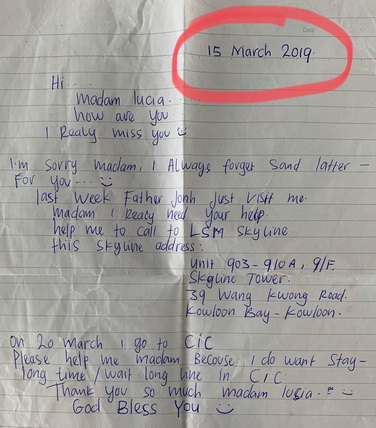 15 March 2019.
Hi...
madam lucia.
how are you
I Realy miss you
I'm sorry madam, I Always forget Sand latter -
For you...
last week Father Jonh Just Visit me.
madam I Realy need your help.
help me to call to LSM Skyline.
this Skyline address:
unit 903-910A, 9/F.
Skyline Tower.
39 Wang Kwong Road.
Kowloon Bay - Kowloon.
on 20 march I go to CiC
Please help me madam Becouse I do want Stay-
long time / wait long time in CIC.
Thank you so much madam lucia.
God Bless You